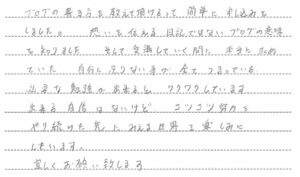 ブログの書き方を教えて頂けるって 簡単に 申し込みを
しました。 想いを伝える 日記ではない ブログの意味
を知りました そして受講していく間に 本当に ため
ていた 自分に 足りない事が 全て つまっている
必要な 勉強が 出来ると ワクワクしています
出来る 自信は ないけど、 コツコツ 努力を
やり続けた先に みえる世界を楽しみに
しています。
宜しくお願い致します